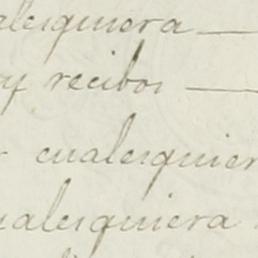 alesquiera
y recibos
cualesquier
ualesquiera